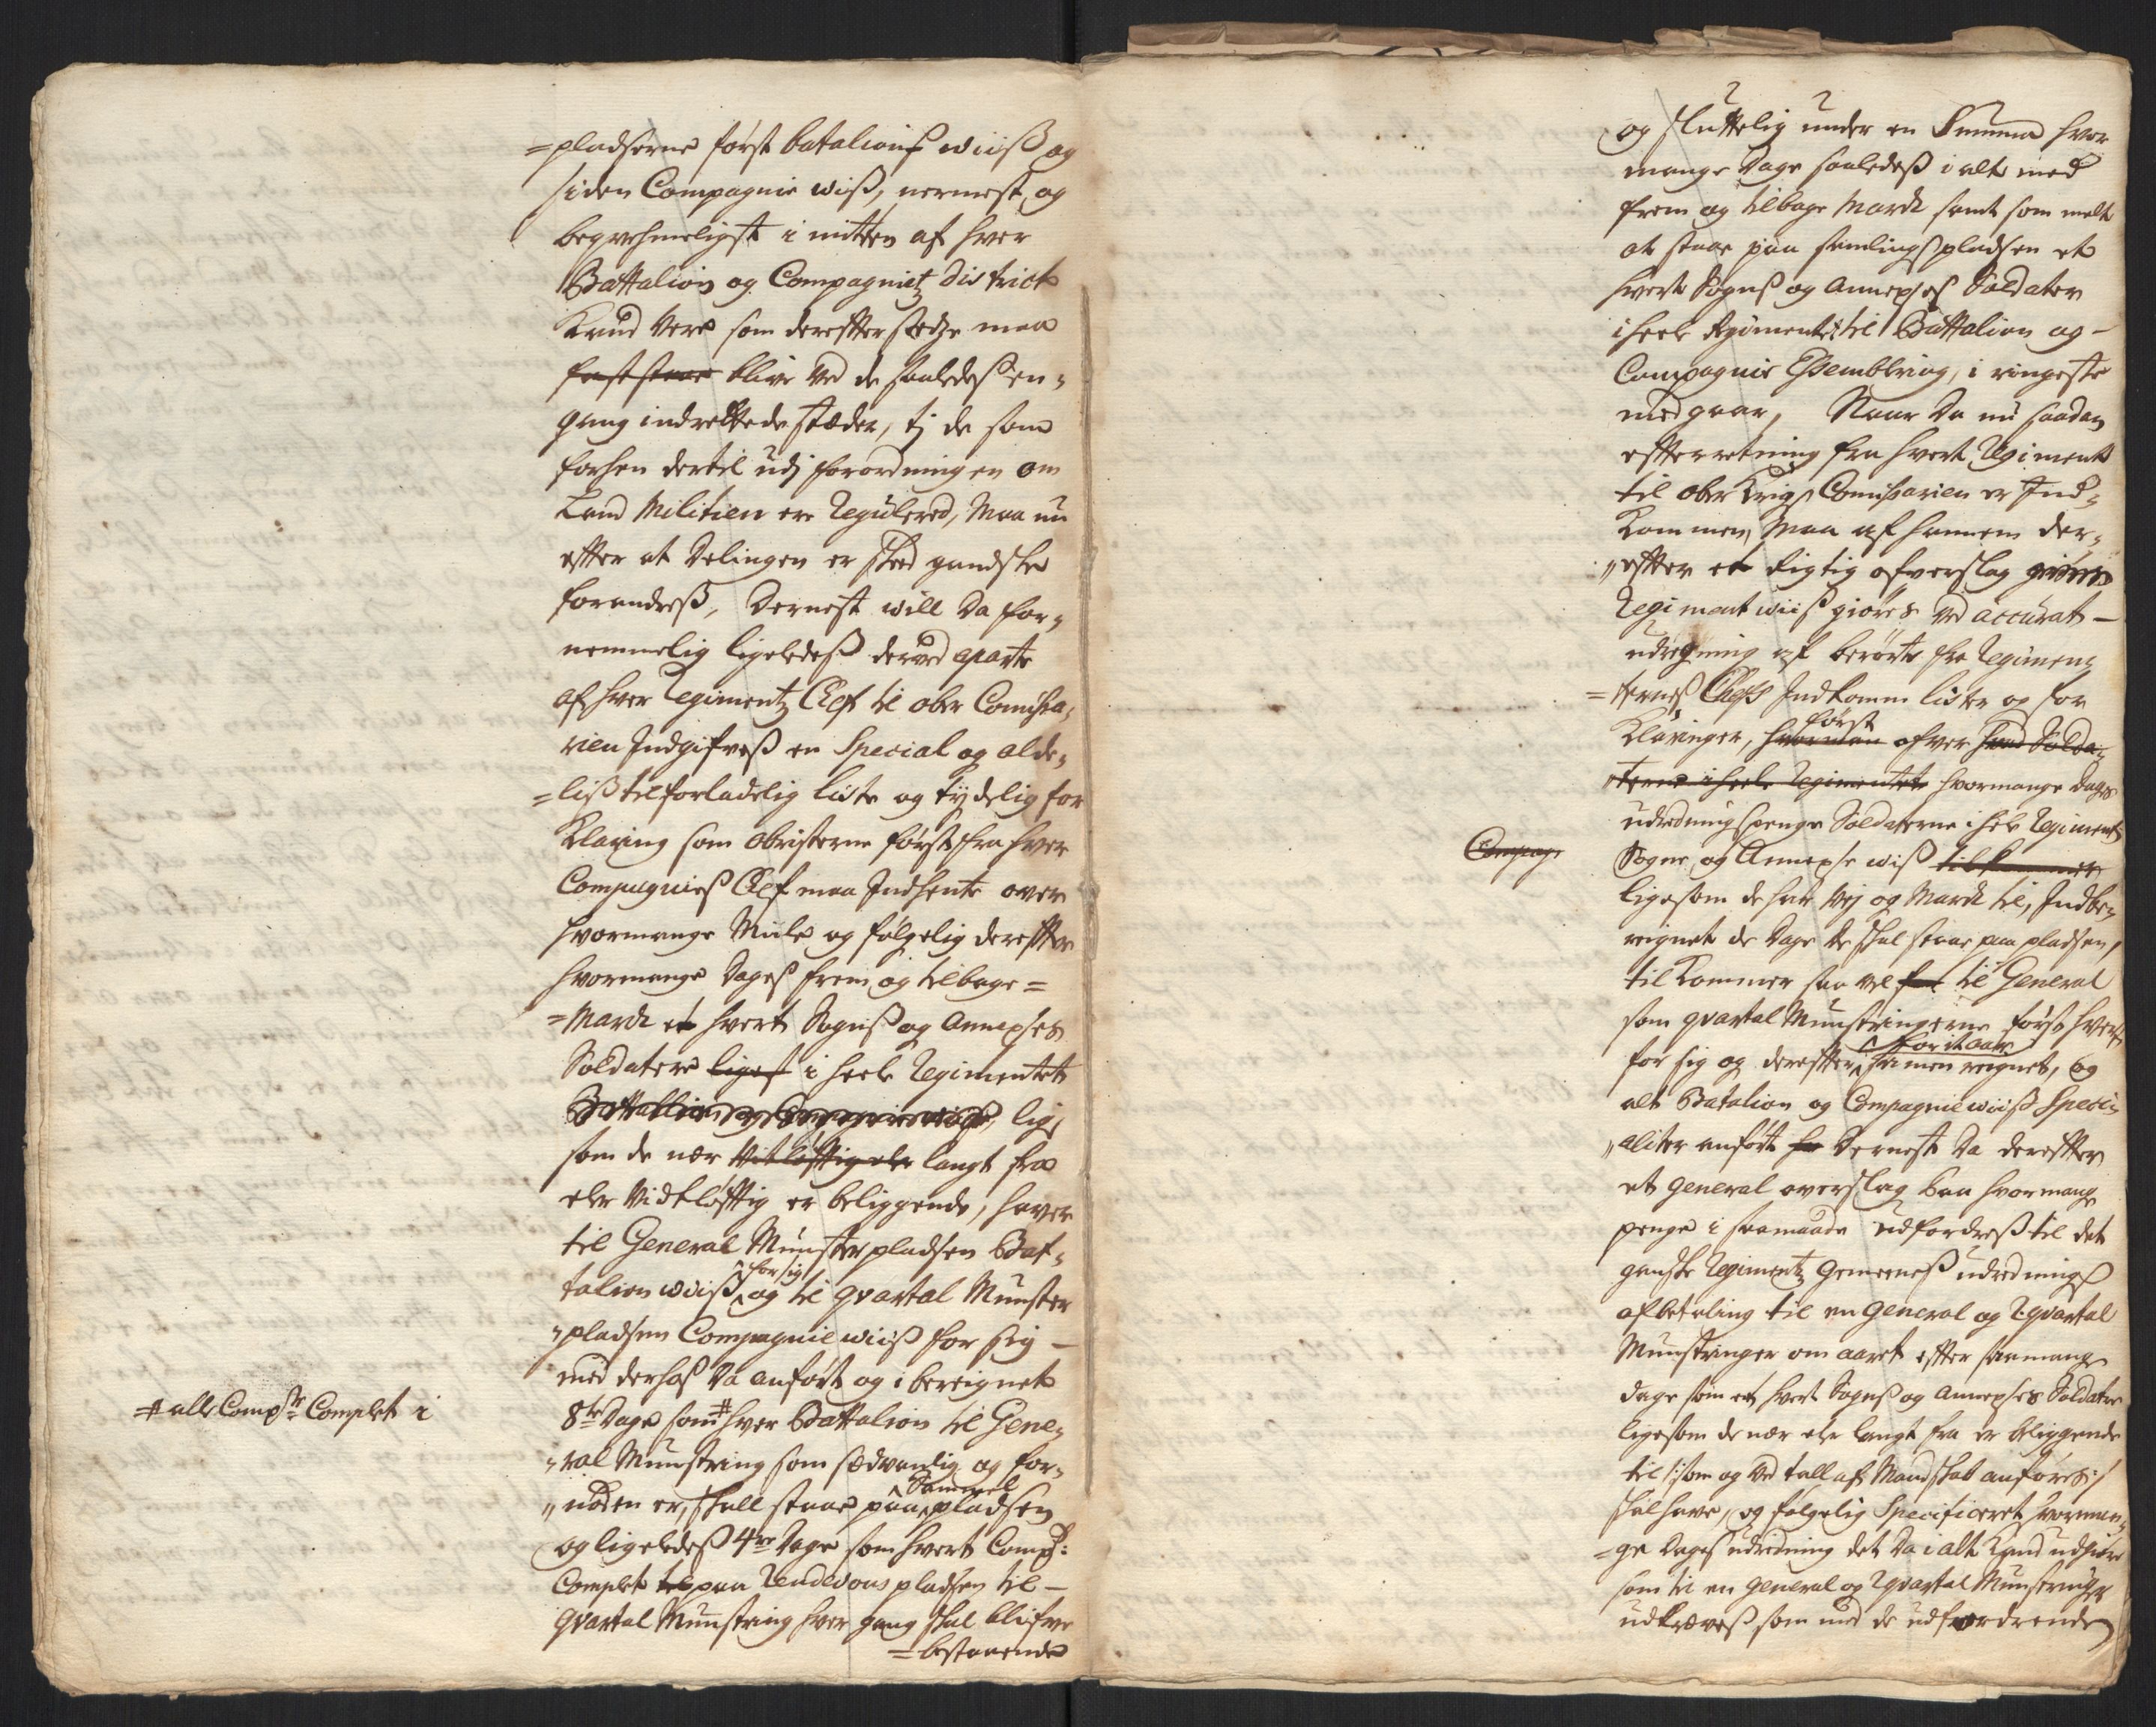 =pladserne først batalions wiiß og
siden Compagnie wiß, nermest og
beqvehmeligst i mitten af hver
Battalion og Compagnietz district
Kand vere som derefter stedze maa
faststaae blive ved de saaledeß en,
gang indrettede stæder, tj de som
forhen dertil udj forordningen om
Land Militien ere Regulered, maa nu
efter at Delingen er skeed gandske
forandreß, Dernest will da for,
nemmelig ligeledeß derved aparte
af hver Regimentz Chef til ober Comihsa,
rien Indgifveß en Special og alde,
=liß tilforladelig liste og tydelig for
Klaring som obristerne først fra hver
Compagnies Chef maa Indhente over
hvormange Miile og følgelig derefter
hvormange Dageß frem og tilbage=
=March et hvert Sognß og Annexses
Soldatere liges i heele Regimentet
Battallions og Compagnie wiiß, lige
som de nær Vitløftig eler langt fra
eler vidtløftig er beliggende, haver
til General Munsterpladsen Bat,
talion wiiß for sig og til qvartal Munster
,pladsen Compagnie wiiß for sig —
med derhos da anført og ibereignet
8te Dage som # hver Battalion til Gene,
,ral Munstring som sædvanlig og for,
# alle Compte Complet i
,nøden er, skall staae paa Sammel pladsen
og ligeledeß 4re Dage som hvert Comp:
Complet til paa Rendevous pladsen til —
qvartal Munstring hver gang skal blifve
=bestaaende
og sluttelig under en Summa hvor
mange Dage saaledeß i alt med
frem og tilbage March samt som melt
at staae paa samlings pladsen et
hvert Sognß og Annexses Soldater
i heele Regimentet til Battalion og —
Compagnie Essembling, i ringeste
medgaar, Naar da nu saadan
efterretning fra hvert Regiment
til ober Krigs Comihsarien er Ind,
Kommen, maa af hannem der,
,efter et Rigtig ofverslag giøres
Regiment wiiß giøres ved accurat —
udregning af berørte fra Regimen,
=terneß Chefs Indkomne liste og for
Klaringer, hvormen først ofver hvad Solda,
,terne i heele Regimentet hvormange Dages
udredningspenge Soldaterne i heele Regiment
Compag:
Sogne og Annexse wiß tilkommer
ligesom de har vej og March til, Indbe,
reignet de Dage de skal staae paa pladsen,
til Kommer saa vel for til General
som qvartal Munstringerne først hver
for sig og derefter for it aar samen reignet, og
alt Batalion og Compagnie wiiß Speci,
,aliter anført for Dernest da derefter
et General overslag paa hvormange
penge i saamaade udfordreß til det
gandske Regimentz Gemeeneß udrednings
afbetaling til en General og 2 qvartal
Munstringer om aaret efter saamange
Dage som et hvert Sognß og Annexses Soldater
ligesom de nær eler langt fra er beliggende
til /: som og ved tall af Mandskab anføres :/
skal have, og følgelig Specificeret hvorman,
=ge Dages udredning det da i alt Kand udgiøre
som til en General og 2 qvartal Munstringer
udkræveß som med de udfordrende